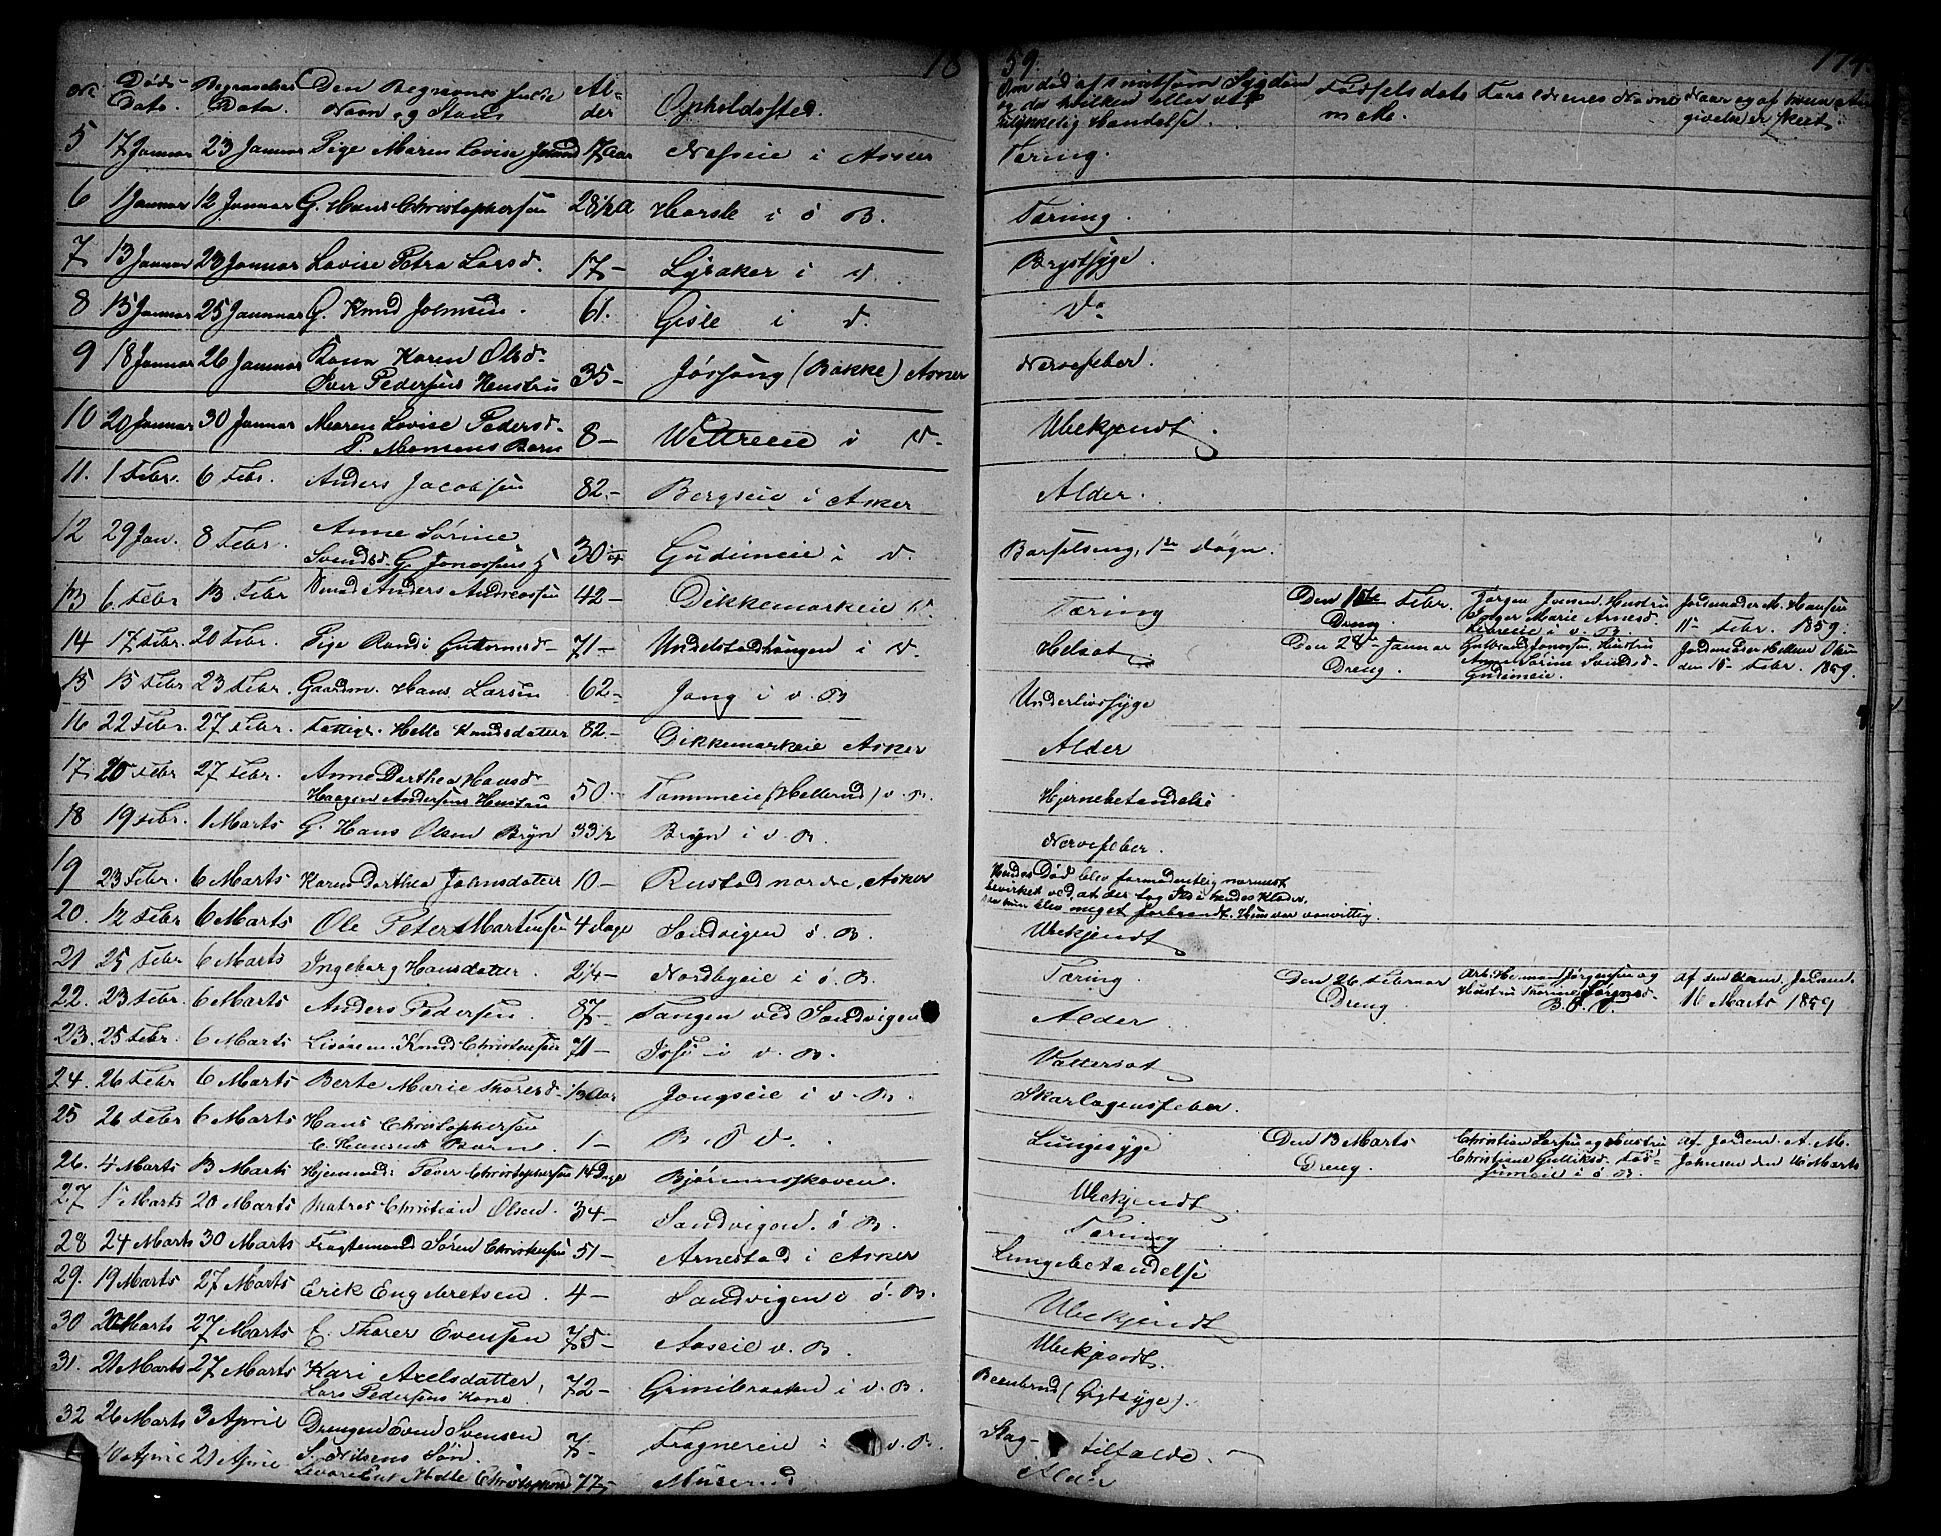 18 59. 174.
No Døds Dato. Begravelses Dato Den Begravnes fulde Navn og Stand Al- der Opholdssted. Om død af smitsom Sygdom og da hvilken eller ved ulykkelig Hændelse. Fødselsdato Forældrenes Navne Naar og af hvem An- givelse er skeet.
5 17 Januar 23 Januar Pige Maren Lovise 17 Aar Næseie i Asker Tæring.
6 1 Januar 12 Januar G. Hans Christophersen 28 1/2 A Harsle i ø. B. Tæring.
7 13 Januar 23 Januar Lovise Petra Larsd. 17 - Lysaker i d. Brystsyge.
8 15 Januar 25 Januar G. Knud Johnsen. 61. Gisle i d. Do
9 18 Januar 26 Januar Kone Karen Olsd.
Iver Pedersens Hustru 35 - (Bakke) Asker Nervefeber.
10 20 Januar 30 Januar Maren Lovise Pedersd.
P. Monsens Barn 8 - Wettreeie i d. Ubekjendt.
11. 1 Febr. 6 Febr. Anders Jacobsen 82.- Bergseie i Asker Alder.
12 29 Jan. 8 Febr. Anne Sørine
Svendsd. G. Jonassens H 30 Gudimeie i d. Barselseng, 1ste Døgn.
13 6. Febr 13 Febr Anders Andreassen 42 - Dikkemarkeie d. Tæring Den Febr. Dreng. Jørgen Iversen, Hustru Inger Marie Arnesd. i v. B. Jordemoder M. Hansen 11te Febr. 1859.
14 17 Febr. 20 Febr. Pige Randi Guttormsd. 71 - Undelstadhangen i d. Helsot Den 28de Januar Dreng. Gulbrand Jonassen, Hustru Anne Sørine Svendsd. Gudimeie. Jordemoder Hellene den 15 Febr. 1859.
15 15 Febr 23 Febr. Gaardm. Hans Larsen 62 - Jong i v. B Underlivssyge
16 22 Febr. 27 Febr. Fattigl. Helle Knudsdatter 82.- Dikkemarkeie Asker Alder
17 20 Febr 27 Febr. Anne Dorthea Hansd.
Haagen Andersens Hustru 50.- Tømmeie (Hellerud) v. B. Hjernebetændelse
18 19 Febr. 1 Marts G. Hans Olsen Bryn 33 1/2 Bryn i v. B. Nervefeber.
19 23 Febr. 6 Marts Karen Dorthea Johnsdatter 10 - Rustad nordre, Asker Hendes Død blev formodentlig nærmest
bevirket ved, at der tog Ild i hendes Klæder,
saa hun blev meget forbrændt. Hun var vanvittig.
20. 12 Febr 6 Marts Ole Peter Martinsen 4 Dage Sandvigen ø. B. Ubekjendt
21 25 Febr 6 Marts Ingeborg Hansdatter. 2 1/4 - Nordbyeie i ø. B. Tæring Den 26 Februar Dreng. Arb. Herman Jørgensen og Hustru Thorine Jørgensd. af den Jordem. 16 Marts 1859
22. 23 Febr. 6 Marts Anders Pedersen. 87 - Tangen ved Sandvigen Alder
23. 25 Febr. 6 Marts Knud Christensen 71 - i v. B. Vattersot
24. 26 Febr 6 Marts Berte Marie Thoresd. 13 Aar Jongseie i v. B. Skarlagensfeber.
25 26 Febr 6 Marts Hans Christophersen
C. Hansens Barn. 1 - B. Ø. V. Lungesyge Den 13 Marts Dreng. Christian Larsen og Hustru Christiane Gulliksd. i ø B. af Jordem. A. M. Johnsen den 16 Marts
26. 4 Marts 13 Marts Hjemmed: Peder Christophersen 14 Dage Bjørumsskoven. Ubekjendt
27 15 Marts 20 Marts Matros Christian Olsen. 34 - Sandvigen. ø B. Tæring
28 24 Marts 30 Marts Fragtemand Søren Christensen 51 - Arnestad i Asker Lungebetændelse
29. 19 Marts 27 Marts Erik Engebretsen. 4 - Sandvigen ø. B. Ubekjendt
30 20 Marts 27 Marts E. Thorer Evensen 75 - Aaseie v. B. Ubekjendt.
31. 21 Marts 27 Marts Kari Axelsdatter,
Lars Pedersens Kone 72 - Grinibraaten i v. B. Beenbrud (Gigtsyge).
32 26 Marts 3 Aprile Drengen Even Svensen
S. Nilsens Søn. 7 - Fragnereie i v. B. Slag- tilfælde.
10 Aprile 21 Aprile Helle Christophersd 77 - Muserud Alder